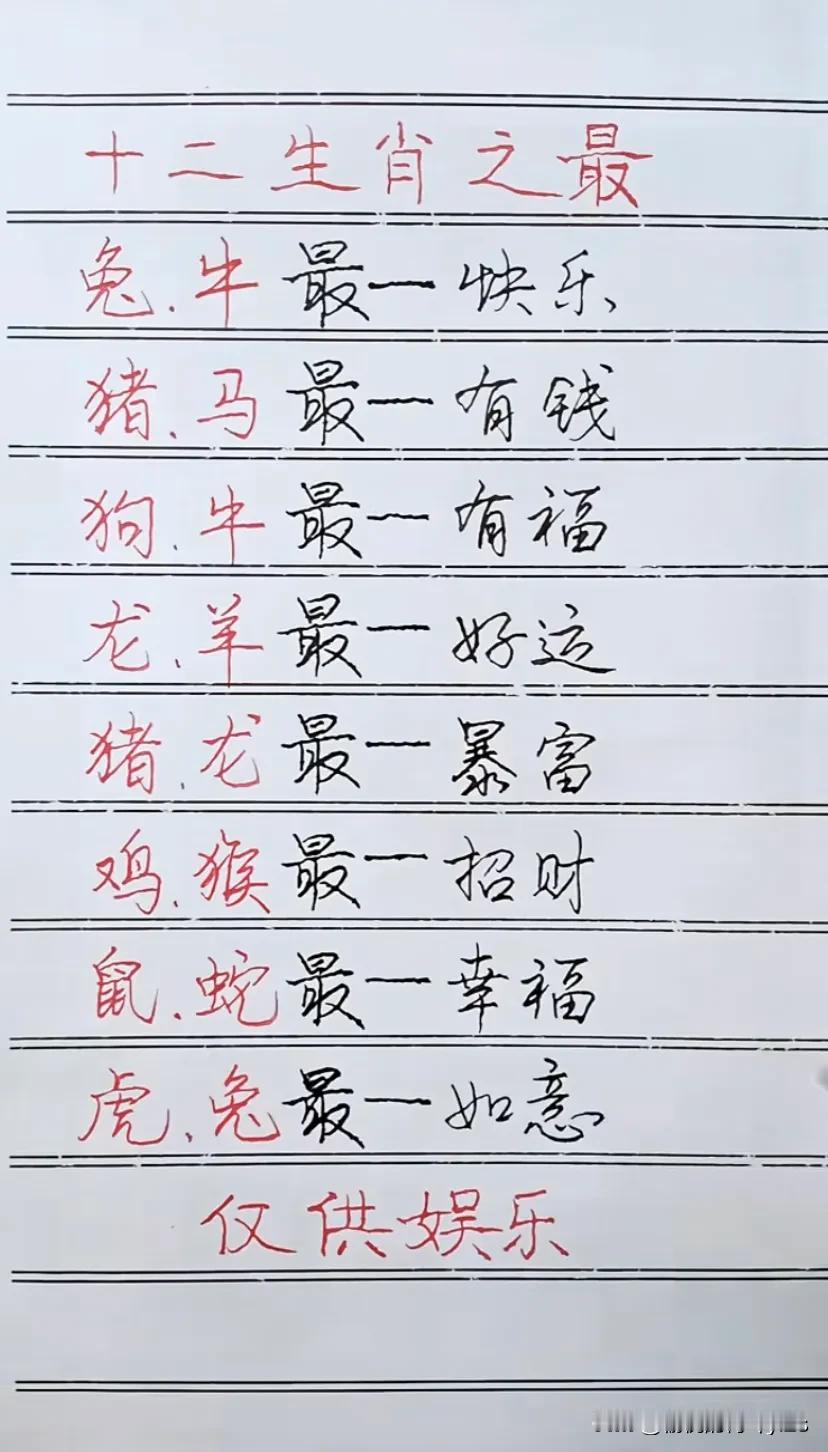 十二生肖之最
兔.牛最一快乐
猪.马最一有钱
狗.牛最一有福
龙.羊最一好运
猪.龙最一暴富
鸡.猴最一招财
鼠.蛇最一幸福
虎.兔最一如意
仅供娱乐